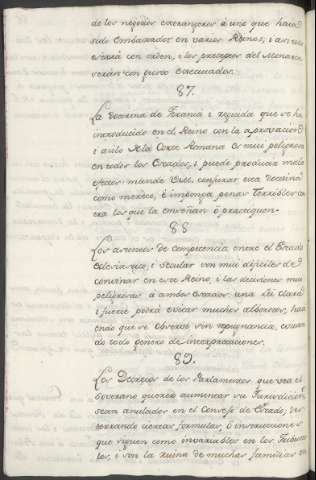 de los negocios extrangeros á uno que haia
sido Embaxador en varios Reinos; i asi todo
estará con orden, i los preceptos del Monarca
serán con gusto evacuados.
87.
La doctrina de Tirania i regicida que se ha
introducido en el Reino con la aprovacion
i asilo de la Corte Romana es mui peligrosa
en todos los Estados, i puede producir malos
efectos: mande V.M. censurar esta doctrina
como merece, é imponga penas terribles con-
tra los que la enseñan ó practiquen.
88
Los asuntos de competencia entre el Estado
eclesiastico, i secular son mui dificiles de
convinar en este Reino, i las decisiones mui
peligrosas á ambos Estados: una lei clara
i fuerte podrá evitar muchos alborotos, haci-
endo que se observe sin repugnancia, evitan-
do todo genero de interpretaciones.
89.
Los Decretos de los Parlamentos que sin el
Soverano quieren aumentar su Jurisdicion
sean anulados en el Consejo de Estado, des-
terrando ciertas formulas, ó instrucciones
que siguen como invariables en los Tribuna-
les, i son la ruina de muchas familias en